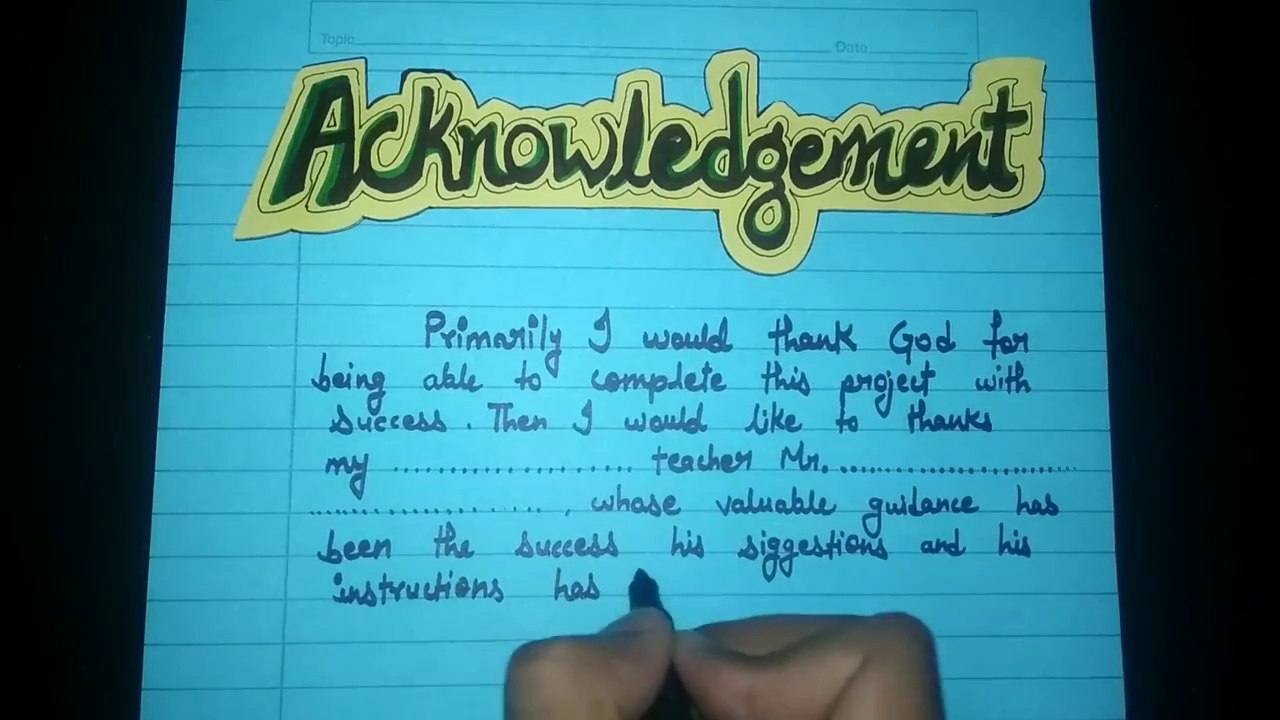 Topic Date
Acknowledgement
Primarily I would thank God for
being able to complete this project with
success. Then I would like to thanks
my ..................... teacher Mr. .........................
....................... , whose valuable guidance has
been the success his siggestions and his
instructions has